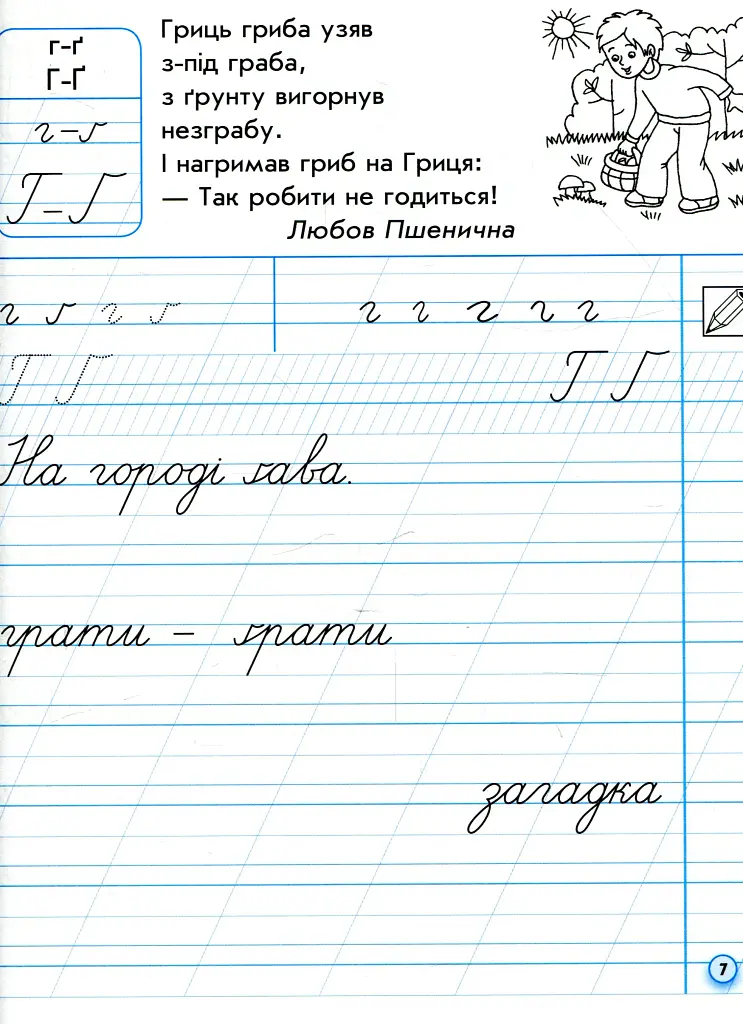 г-ґ
Г-Ґ
г-ґ
Г-Ґ
Гриць гриба узяв
з-під граба,
з ґрунту вигорнув
незграбу.
І нагримав гриб на Гриця:
— Так робити не годиться!
Любов Пшенична
г ґ г ґ г г г г г
Г Ґ Г Ґ
На городі ґава.
грати – ґрати
загадка
7